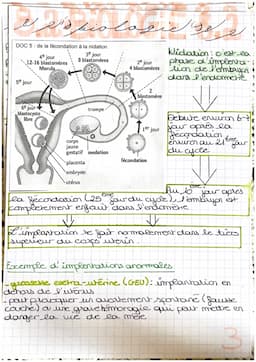 DOC 5 : de la fécondation à la nidation
4e jour
12-16 blastomères
Morula
3e jour
8 blastomères
2e jour
4
blastomères
5e jour
6e jour
Blastocyste
libre
2
blastomères
trompe
1er jour
corps
jaune
gestatif
ovulation
fécondation
placenta
embryon
utérus
Nidation : c'est la
phase d'implanta-
tion de l'embryon
dans l'endomètre
Débute environ 6-7
jour après la
fécondation
environ au 21ème jour
du cycle
Au 10ème jour après
la fécondation (25ème jour du cycle), l'embryon est
complètement enfoui dans l'endomètre
L'implantation se fait normalement dans le tiers
supérieur du corps utérin.
Exemple d'implantations anormales
- grossesse extra-utérine (GEU): implantation en
dehors de l'utérus
- peut provoquer un avortement spontané (fausse
couche) ou une grave hémorragie qui peut mettre en
danger la vie de la mère
3